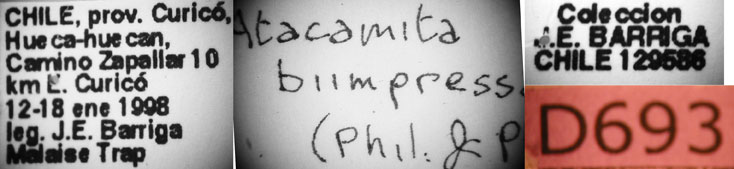 CHILE, prov. Curicó,
Hueca-huecan,
Camino Zapallar 10
km E. Curicó
12-18 ene 1998
leg. J.E. Barriga
Malaise Trap
Atacamita
biimpress
(Phil. & P
Coleccion
J.E. BARRIGA
CHILE 129586
D693